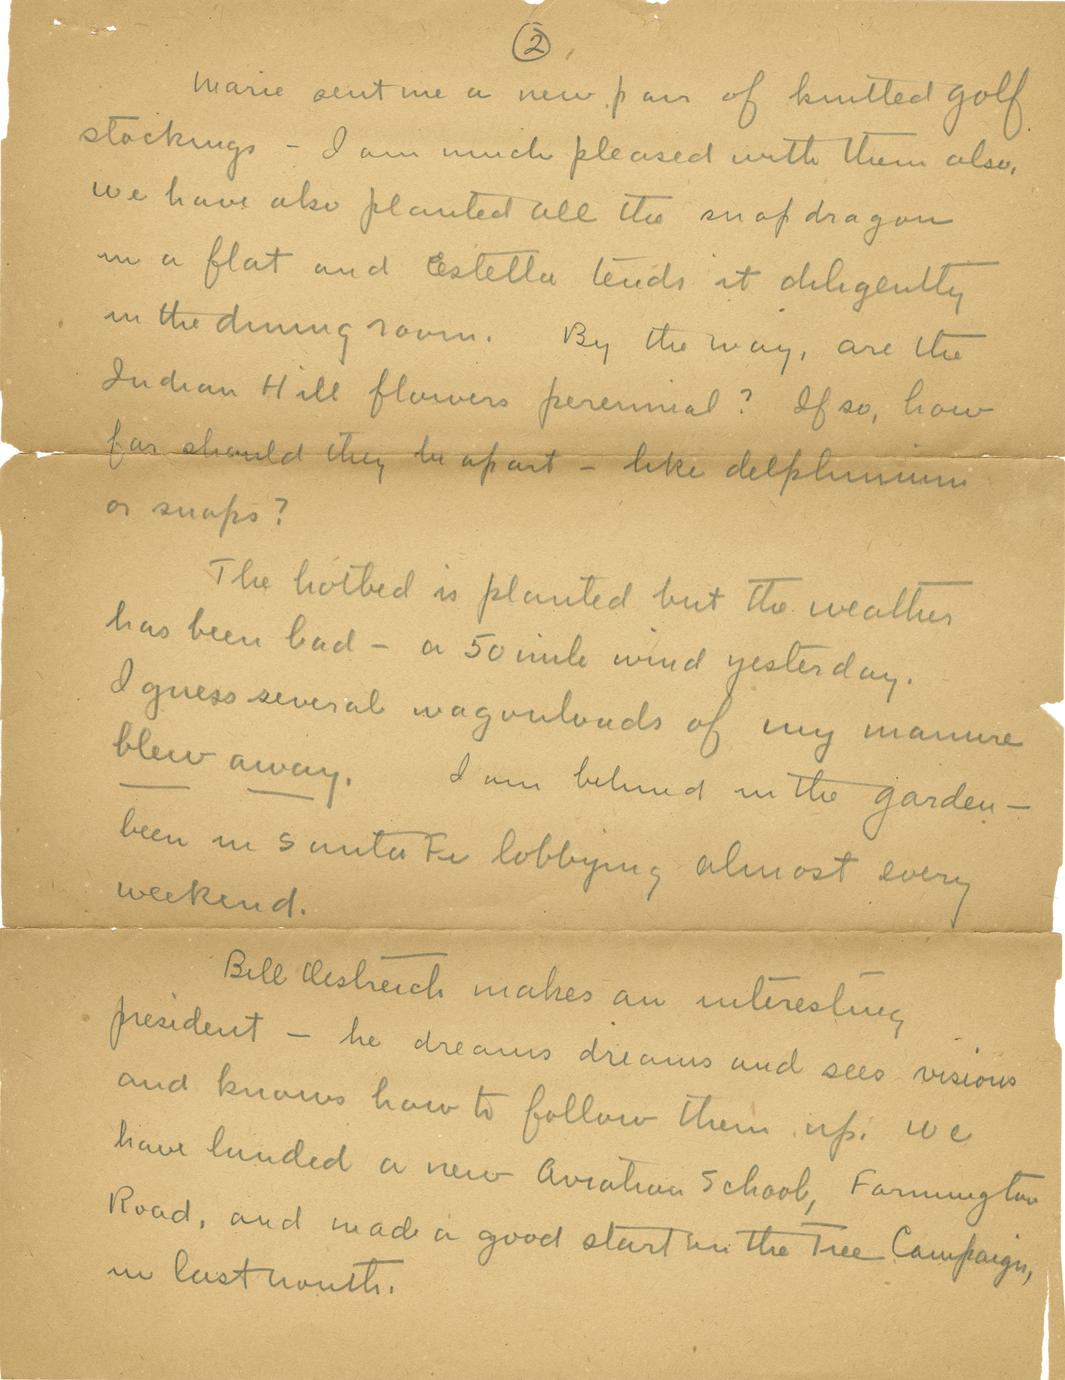 2
Marie sent me a new pair of knitted golf
stockings – I am much pleased with them also.
We have also planted all the snapdragon
in a flat and Estella tends it diligently
in the dining room. By the way, are the
Indian Hill flowers perennial? If so, how
far should they be apart – like delphinium
or snaps?
The hotbed is planted but the weather
has been bad – a 50 mile wind yesterday.
I guess several wagonloads of my manure
blew away. I am behind in the garden –
been in Santa Fe lobbying almost every
weekend.
Bill Oestreich makes an interesting
president – he dreams dreams and sees visions
and knows how to follow them up. We
have landed a new Aviation School, Farmington
Road, and made a good start in the Tree Campaign,
in last month.